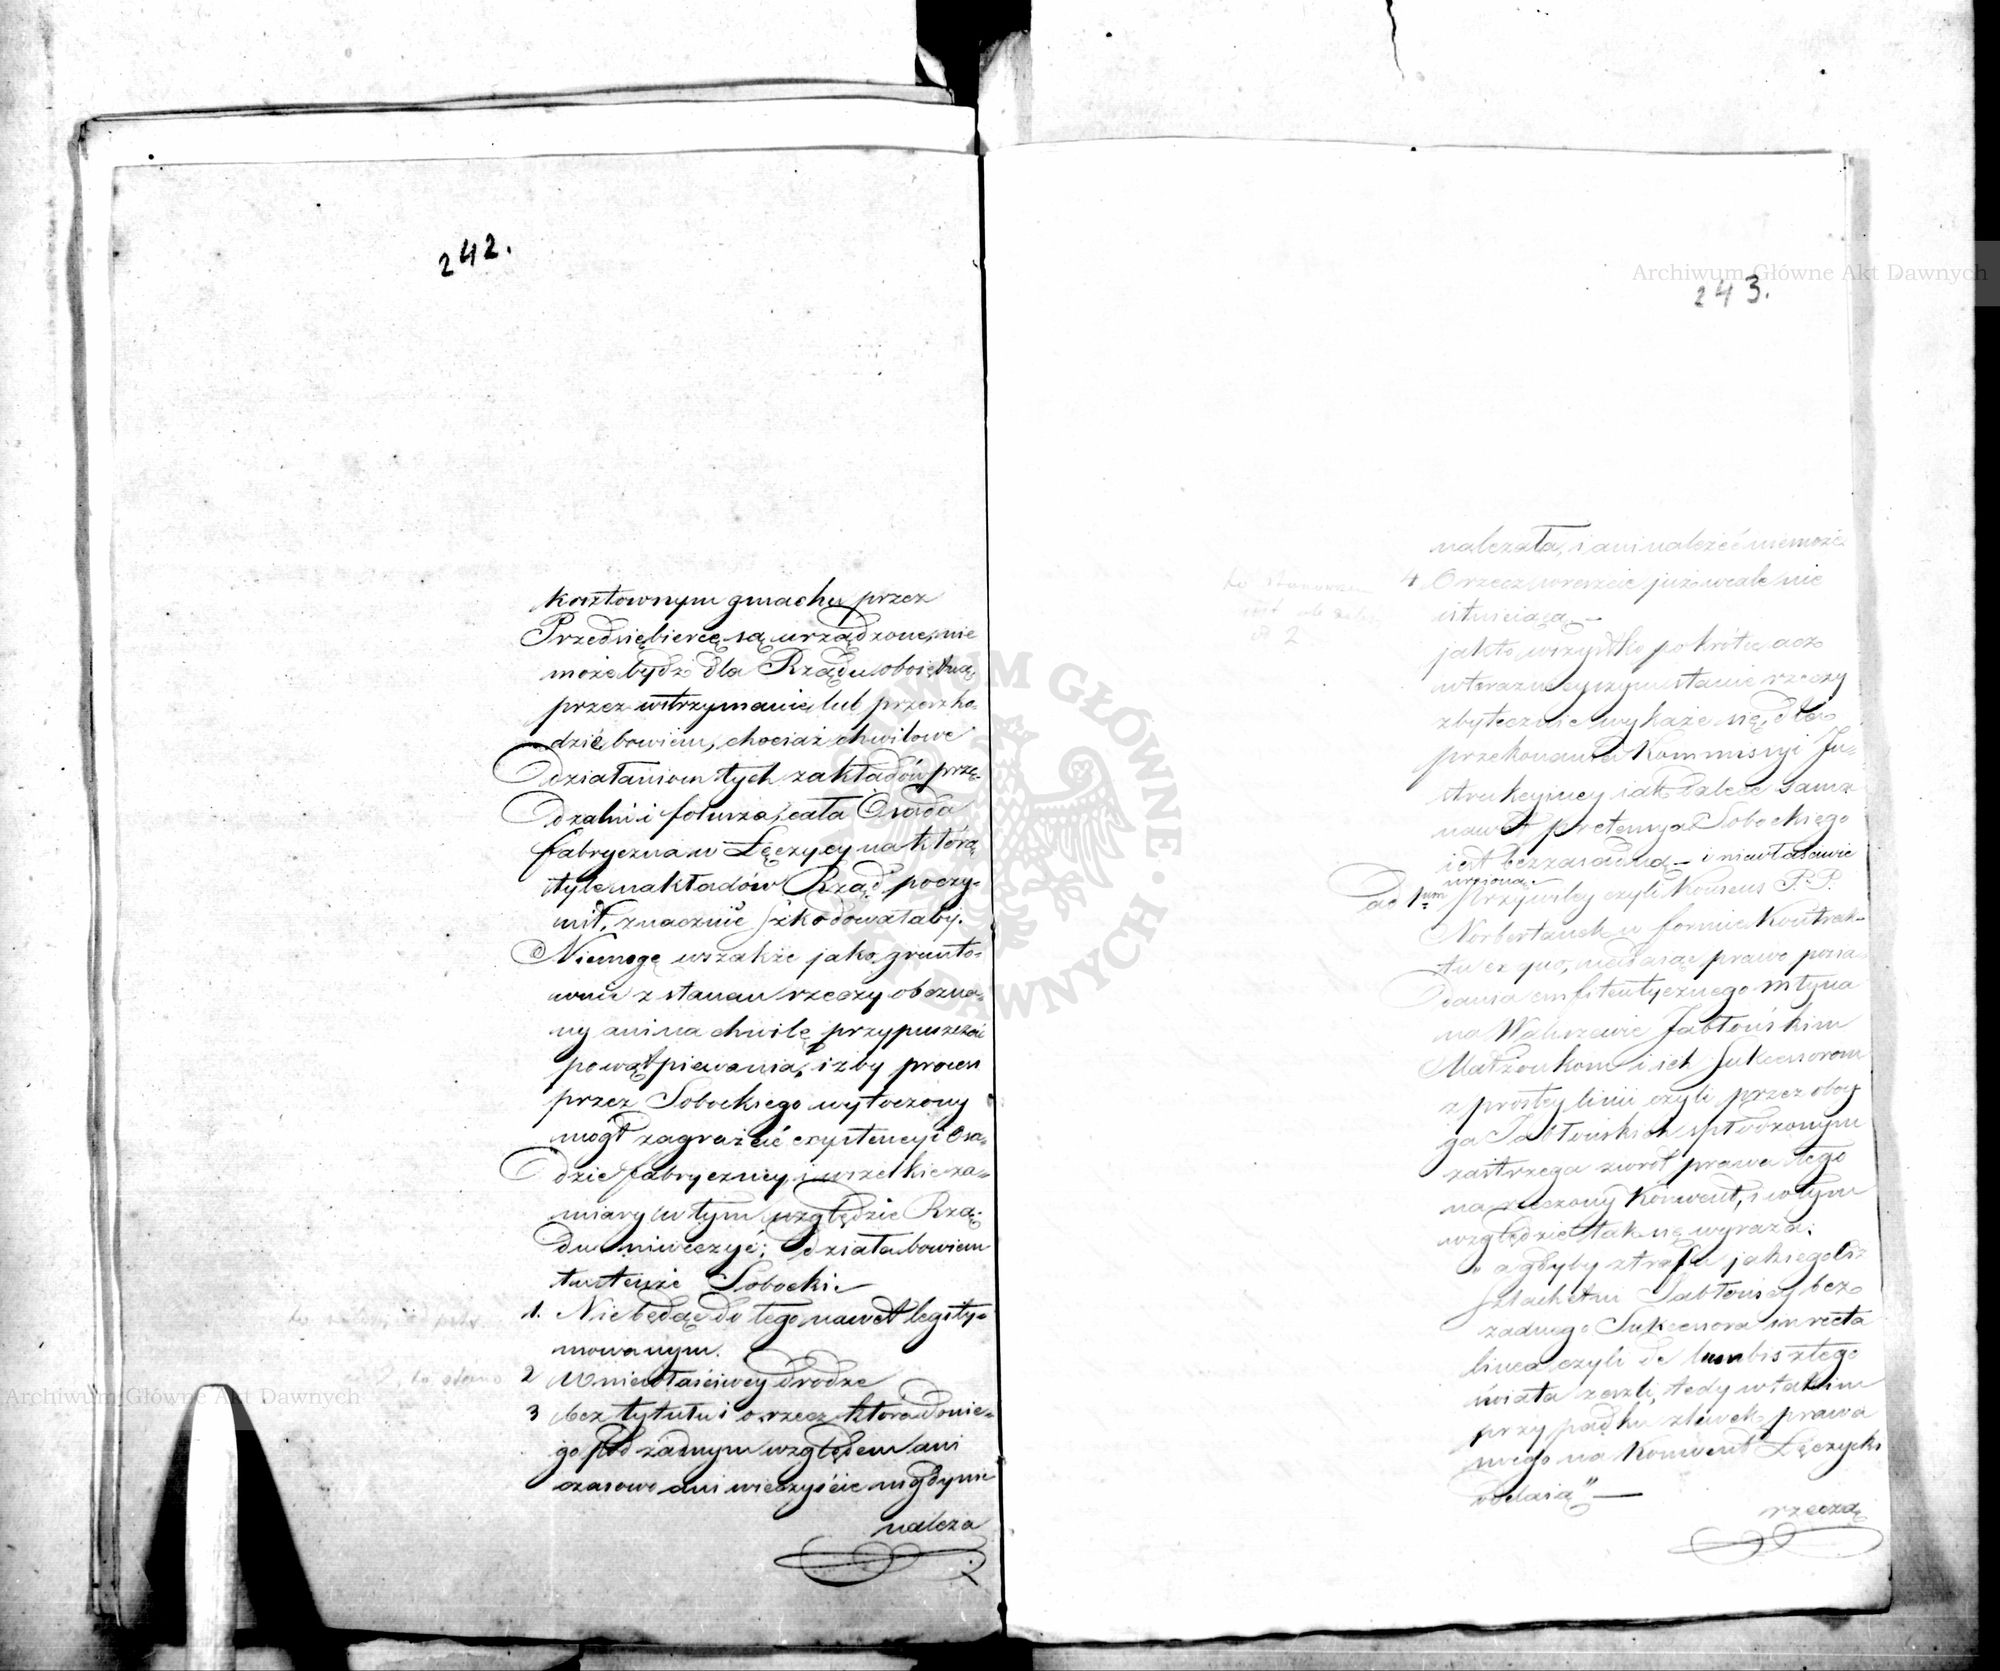 242.
kosztownym gmachu przez
Przedsiębiercę są urządzone, nie
może bydź dla Rządu oboiętną
przez wstrzymanie lub przeszko-
dzić bowiem, chociaż chwilowe
działaniom tych zakładów przę-
dzalni i folusza, cała Osada
fabryczna w Łęczycy na którą
tyle nakładów Rząd poczy-
nił, znacznie szkodowałaby.
Niemogę wszakże jako grunto-
wnie z stanem rzeczy obezna-
ny ani na chwilę przypuszczać
powątpiewania, iżby proces
przez Sobockiego wytoczony
mógł zagrażać exystencyi Osa-
dzie fabryczney i wszelkie za-
miary w tym względzie Rzą-
du niweczyć; działa bowiem
tutenże Sobocki
1. Nie będąc do tego nawet legity-
mowanym.
2 W niewłaściwey drodze
3 bez tytułu i o rzecz która do nie-
go pod żadnym względem ani
czasowo ani wieczyście nigdy nie
należa
243.
należała, i ani należeć niemoże
4 O rzecz wreszcie już wcale nie
istnieiącą.—
jak to wszystko pokrótce acz
w teraznieyszym stanie rzeczy
zbytecznie wykaże się, dla
przekonania Kommissyi In-
strukcyiney iak dalece sama
nawet pretensya Sobockiego
iest bezzasadną — i niewłaściwie
wzioną.—
Ad 1um Przywiley czyli Konsens P. P.
Norbertanek w formie Kontrak-
tu ex quo, nadaiąc prawo posia-
dania emfiteutycznego młyna
na Waliszewie Jabłońskim
Małżonkom i ich Sukcessorom
z prostey linii czyli przez oboy
ga Jabłońskich spłodzonym
zastrzega zwrot prawa tego
na rzeczony Konwent, i w tym
względzie tak się wyraża:
„ a gdyby z trafu jakiegoliż
Szlachetni Jabłońscy bez
żadnego Sukcessora in recta
linea czyli de lumbis z tego
świata zeszli, tedy w takim
przypadku zlewek prawa
swego na Konwent Łęczycki
zdadzą” —
rzeczą
Archiwum Główne Akt Dawnych
Archiwum Główne Akt Dawnych
ARCHIWUM GŁÓWNE AKT DAWNYCH